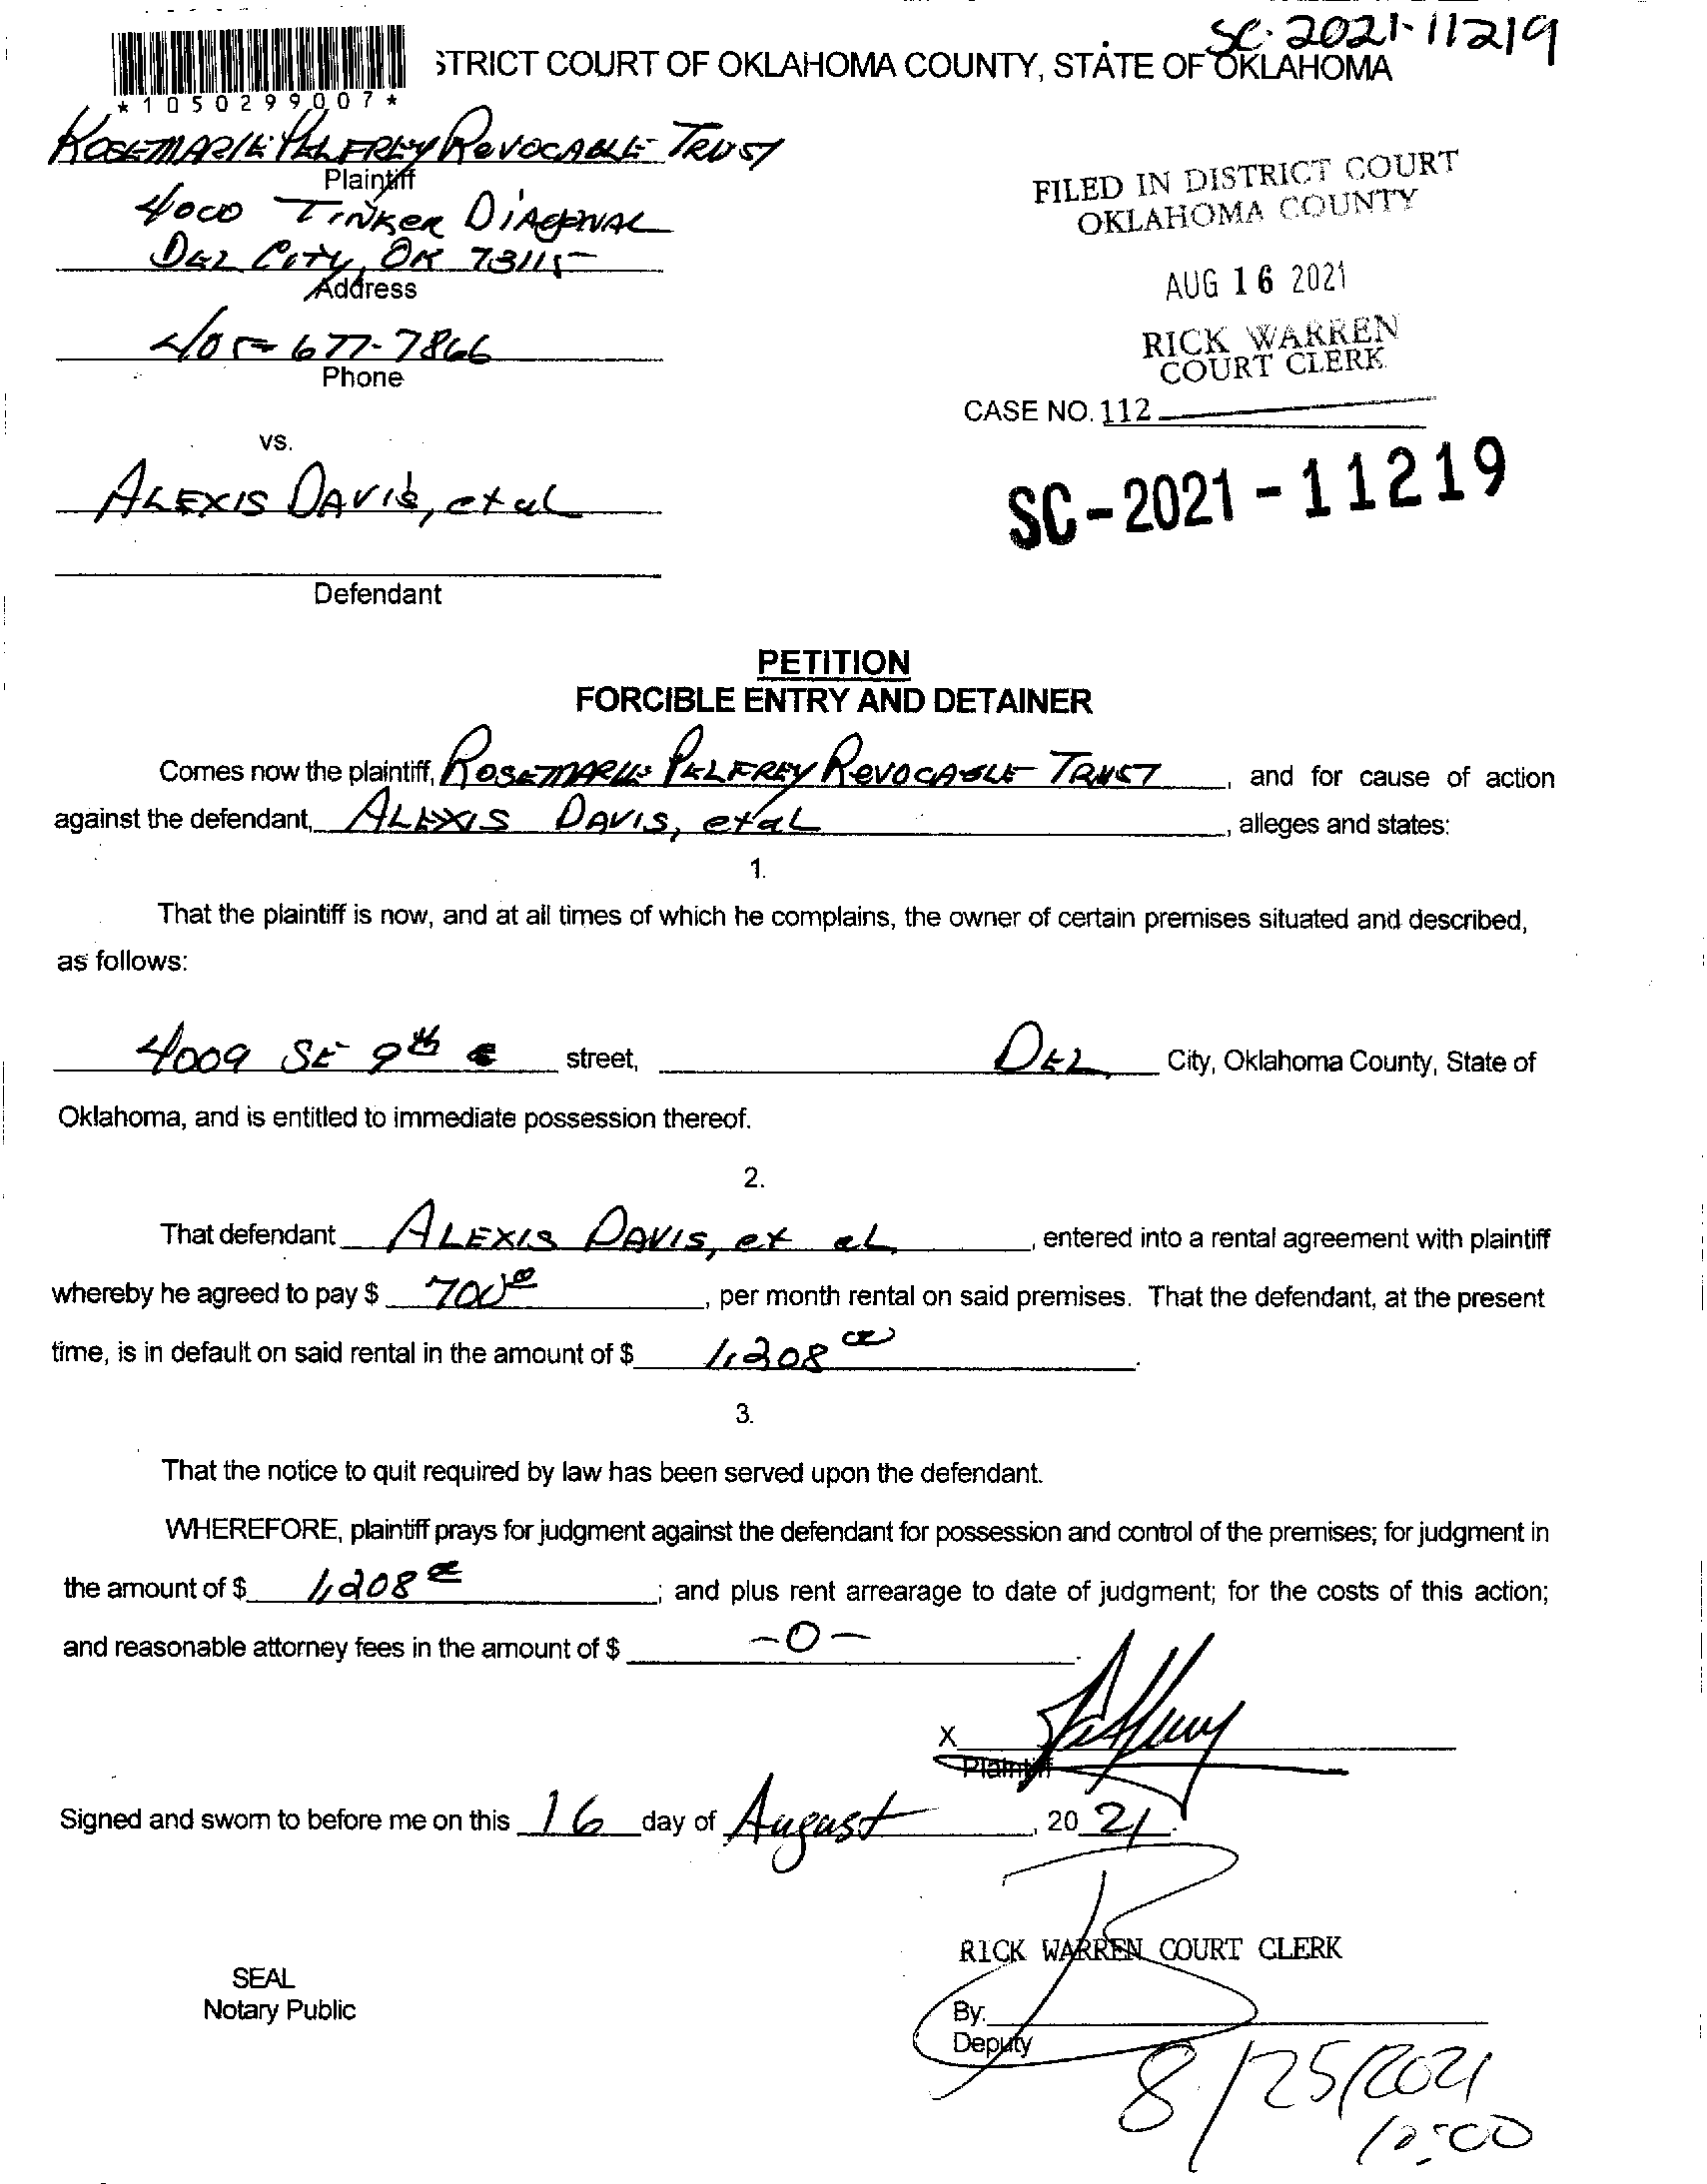 SC-2021-11219
STRICT COURT OF OKLAHOMA COUNTY, STATE OF OKLAHOMA
*1050299007*
ROSEMARIE PELFREY REVOCABLE TRUST
Plaintiff
4000 TINKER DIAGONAL
DEL CITY, OK 73115
Address
405-677-7866
Phone
FILED IN DISTRICT COURT
OKLAHOMA COUNTY
AUG 16 2021
RICK WARREN
COURT CLERK
CASE NO. 112
SC-2021-11219
vs.
ALEXIS DAVIS, et al
Defendant
PETITION
FORCIBLE ENTRY AND DETAINER
Comes now the plaintiff, ROSEMARIE PELFREY REVOCABLE TRUST, and for cause of action
against the defendant, ALEXIS DAVIS, et al, alleges and states:
1.
That the plaintiff is now, and at all times of which he complains, the owner of certain premises situated and described,
as follows:
4009 SE 9th street, DEL City, Oklahoma County, State of
Oklahoma, and is entitled to immediate possession thereof.
2.
That defendant ALEXIS DAVIS, et al, entered into a rental agreement with plaintiff
whereby he agreed to pay $ 700 00, per month rental on said premises. That the defendant, at the present
time, is in default on said rental in the amount of $ 1,208 00.
3.
That the notice to quit required by law has been served upon the defendant.
WHEREFORE, plaintiff prays for judgment against the defendant for possession and control of the premises; for judgment in
the amount of $ 1,208 00; and plus rent arrearage to date of judgment; for the costs of this action;
and reasonable attorney fees in the amount of $ -0-.
X
Plaintiff
Signed and sworn to before me on this 16 day of August, 20 21.
RICK WARREN COURT CLERK
SEAL
Notary Public
By:
Deputy
8/25/2021